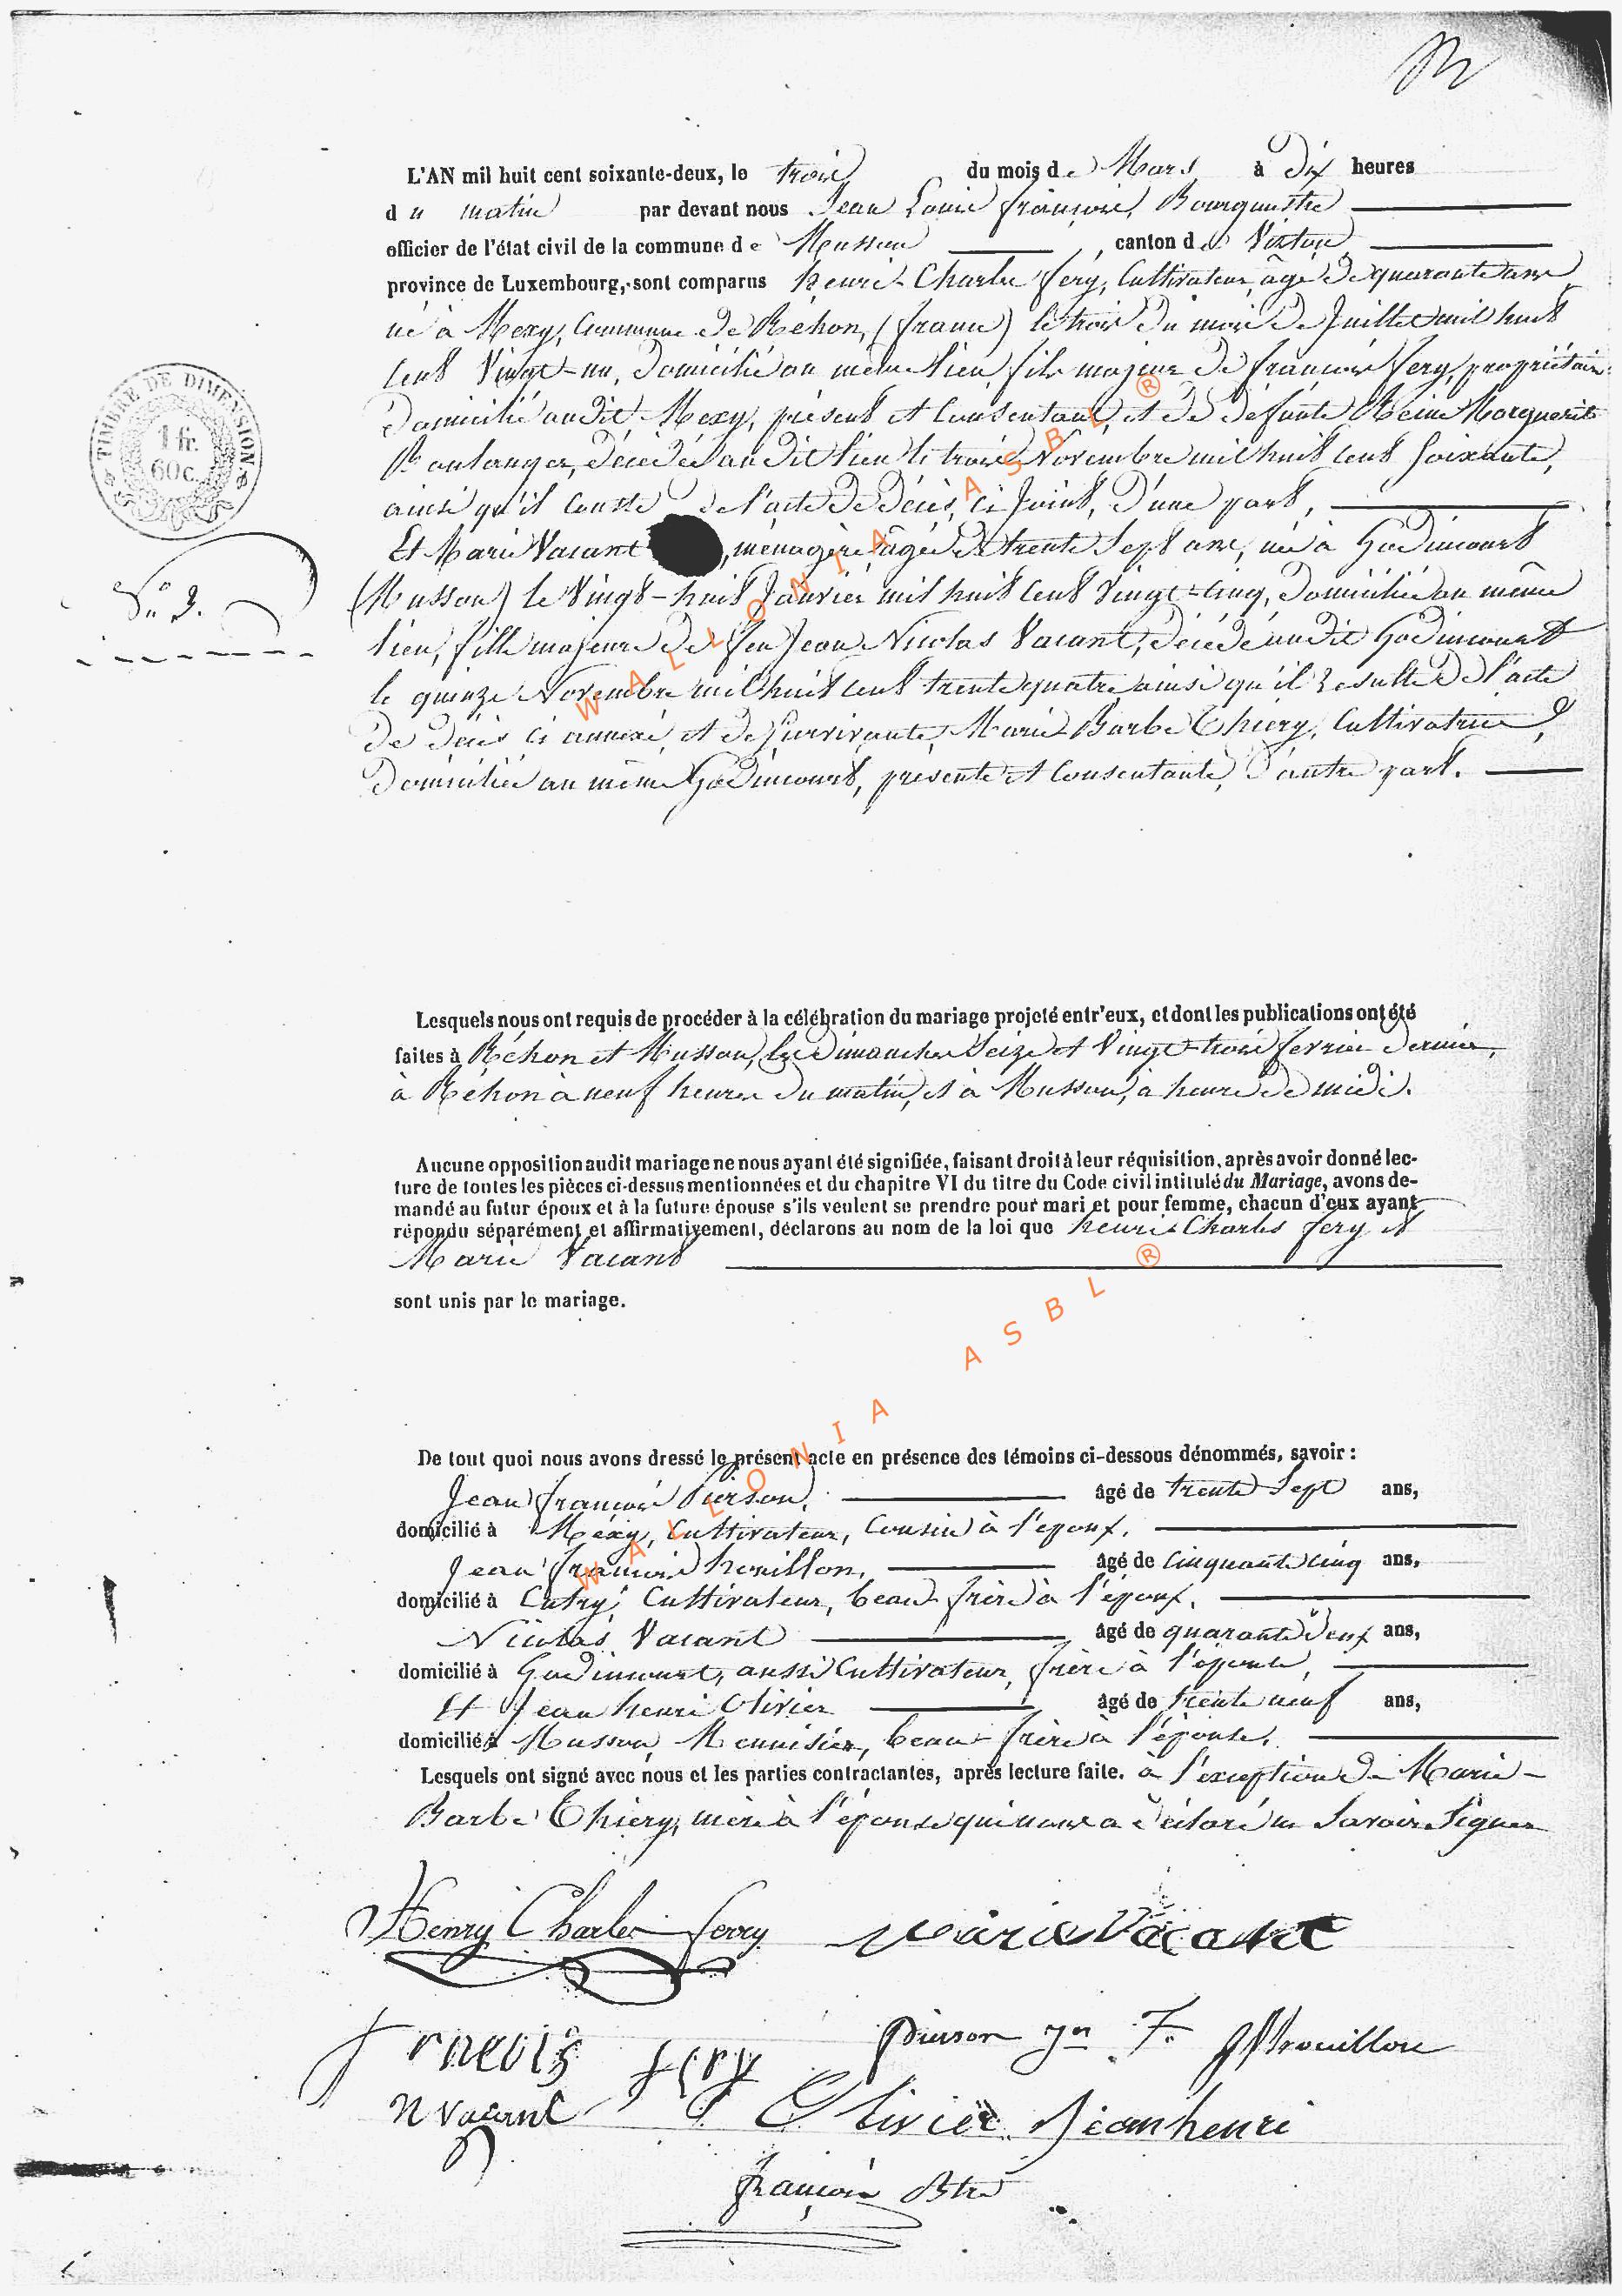 L'AN mil huit cent soixante-deux, le trois du mois de Mars à Dix heures
du matin par devant nous Jean Louis françois, Bourgmestre
officier de l'état civil de la commune de Musson canton de Virton
province de Luxembourg, sont comparus henri-Charles fery, Cultivateur, âgé de quarante ans
né à Mexy, Commune de Réhon, (france) le trois du mois de Juillet mil huit
Cent Vingt-un, domicilié au même lieu, fils majeur de françois fery, propriétaire
domicilié audit Mexy, présent et Consentant, et de defunte Reine Marguerite
Boulanger, décédée audit lieu le trois Novembre mil huit cent Soixante,
ainsi qu'il Conste de l'acte de décès, ci Joint, d'une part,
Et Marie Vacant, ménagère âgée de trente Sept ans, née à Godincourt
(Musson) le Vingt-huit Janvier mil huit Cent Vingt-Cinq, domiciliée au même
lieu, fille majeure de feu Jean Nicolas Vacant, décédé audit Godincourt
le quinze Novembre mil huit cent trente quatre ainsi qu'il resulte de l'acte
de décès ci annexé, et de Survivante, Marie Barbe Thiery, Cultivatrice,
domiciliée au même Godincourt, présente et Consentante, d'autre part.
TIMBRE DE DIMENSION
1 fr.
60 c.
N° 3.
Lesquels nous ont requis de procéder à la célébration du mariage projeté entr'eux, et dont les publications ont été
faites à Réhon et Musson, les dimanches Seize et Vingt-trois fevrier dernier,
à Réhon à neuf heures du matin, et à Musson, à heure de midi.
Aucune opposition audit mariage ne nous ayant été signifiée, faisant droit à leur réquisition, après avoir donné lec-
ture de toutes les pièces ci-dessus mentionnées et du chapitre VI du titre du Code civil intitulé du Mariage, avons de-
mandé au futur époux et à la future épouse s'ils veulent se prendre pour mari et pour femme, chacun d'eux ayant
répondu séparément et affirmativement, déclarons au nom de la loi que henri-Charles fery et
Marie Vacant
sont unis par le mariage.
De tout quoi nous avons dressé le présent acte en présence des témoins ci-dessous dénommés, savoir :
Jean françois Pierson, âgé de trente Sept ans,
domicilié à Mexy, Cultivateur, Cousin à l'époux,
Jean françois hrouillon, âgé de Cinquante Cinq ans,
domicilié à Cutry, Cultivateur, beau-frère à l'époux,
Nicolas Vacant âgé de quarante deux ans,
domicilié à Godincourt, aussi Cultivateur, frère à l'épouse,
Et Jean henri Olivier âgé de trente neuf ans,
domicilié à Musson, Menuisier, beau-frère à l'épouse,
Lesquels ont signé avec nous et les parties contractantes, après lecture faite. à l'exception de Marie-
Barbe Thiery, mère à l'épouse qui nous a déclaré ne Savoir Signer
Henry Charles ferry Marie Vacant
frncois fery pierson jn F. JF hrouillon
n vacant Olivier Jean henri
françois Btre
WALLONIA ASBL ®
WALLONIA ASBL ®